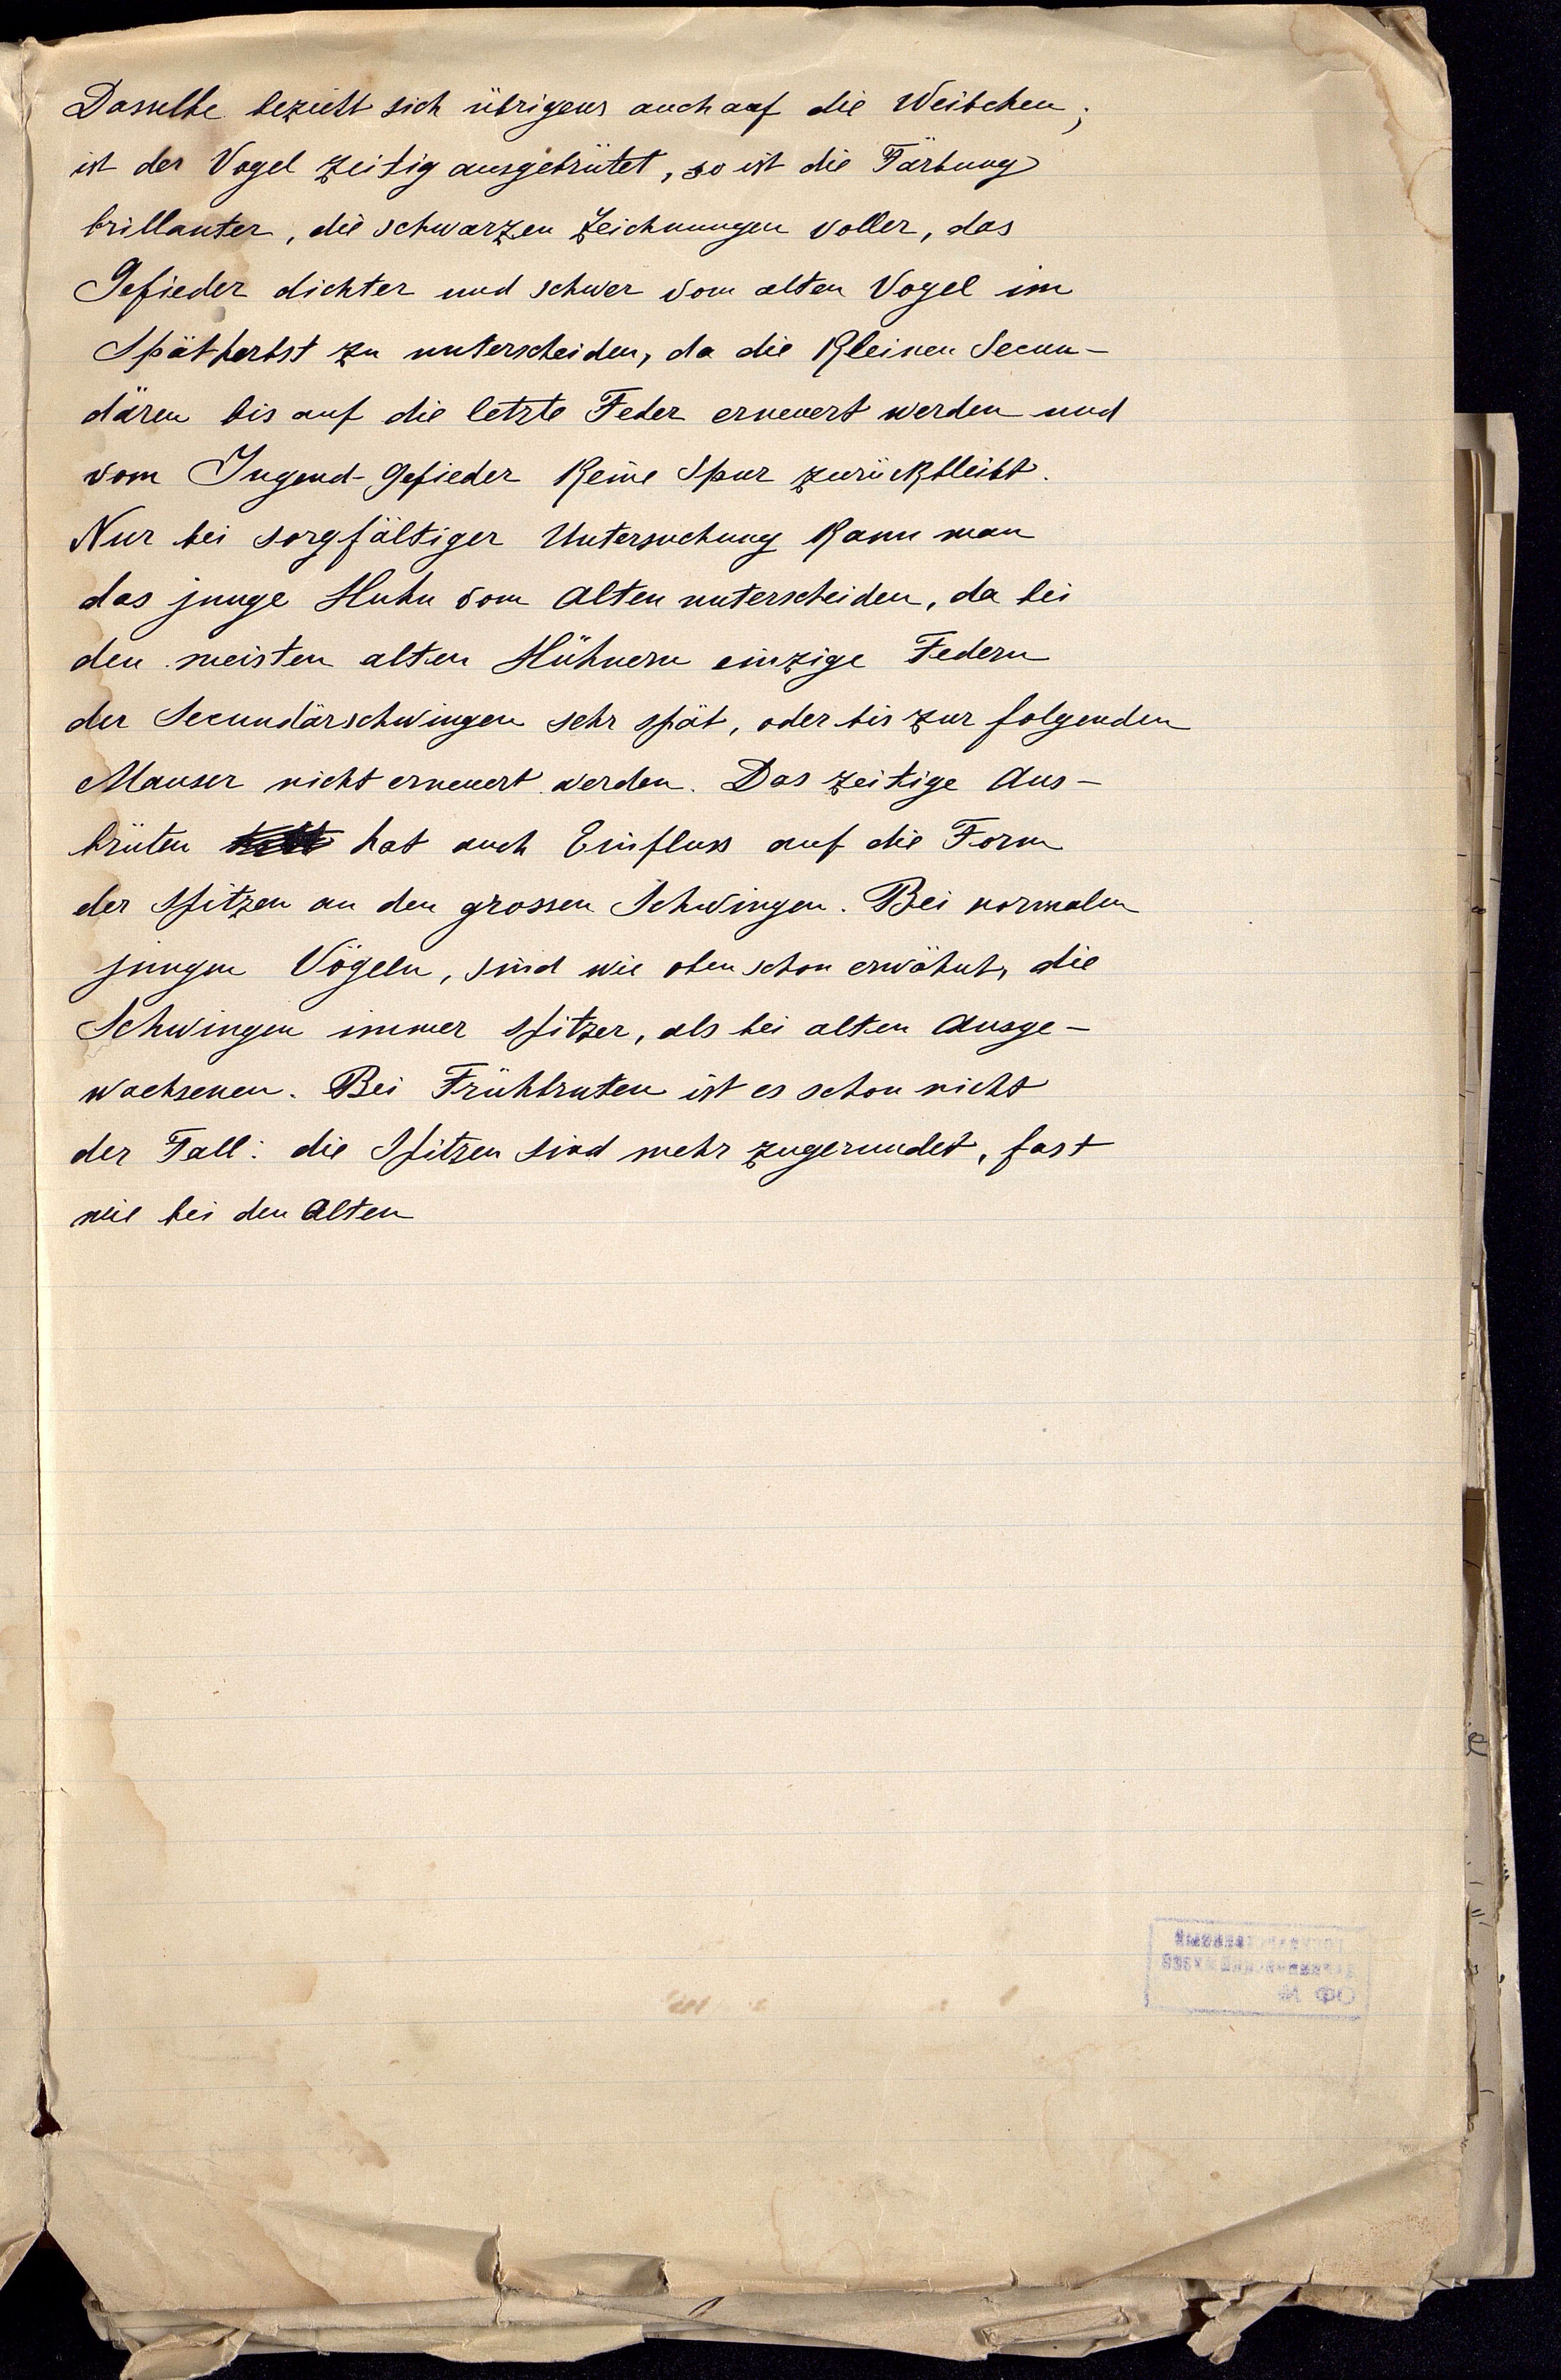 Dasselbe bezieht sich übrigens auch auf die Weibchen;
ist der Vogel zeitig ausgebrütet, so ist die Färbung
brillanter, die schwarzen Zeichnungen voller, das
Gefieder dichter und schwer vom alten Vogel im
Spätherbst zu unterscheiden, da die kleinen Secun-
dären bis auf die letzte Feder erneuert werden und
vom Jugend-Gefieder keine Spur zurückbleibt.
Nur bei sorgfältiger Untersuchung kann man
das junge Huhn vom Alten unterscheiden, da bei
den meisten alten Hühnern einzige Federn
der Secundärschwingen sehr spät, oder bis zur folgenden
Mauser nicht erneuert werden. Das zeitige Aus-
brüten hat auch Einfluss auf die Form
der Spitzen an den grossen Schwingen. Bei normalen
jungen Vögeln, sind wie oben schon erwähnt, die
Schwingen immer spitzer, als bei alten Ausge-
wachsenen. Bei Frühbruten ist es schon nicht
der Fall: die Spitzen sind mehr zugerundet, fast
wie bei den Alten
ОФ №